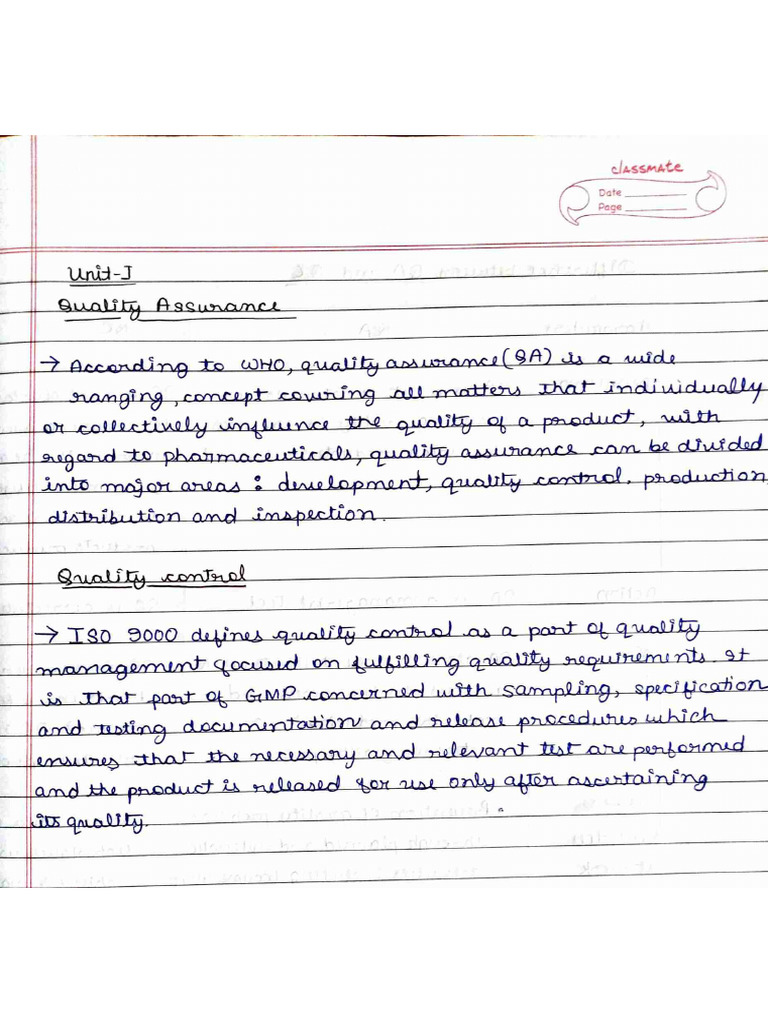 classmate
Date
Page
Unit-I
Quality Assurance
→ According to WHO, quality assurance (QA) is a wide
ranging, concept covering all matters that individually
or collectively influence the quality of a product, with
regard to pharmaceuticals, quality assurance can be divided
into major areas : development, quality control, production,
distribution and inspection.
Quality control
→ ISO 9000 defines quality control as a part of quality
management focused on fulfilling quality requirements. It
is that part of GMP concerned with sampling, specification
and testing documentation and release procedures which
ensures that the necessary and relevant test are performed
and the product is released for use only after ascertaining
its quality.